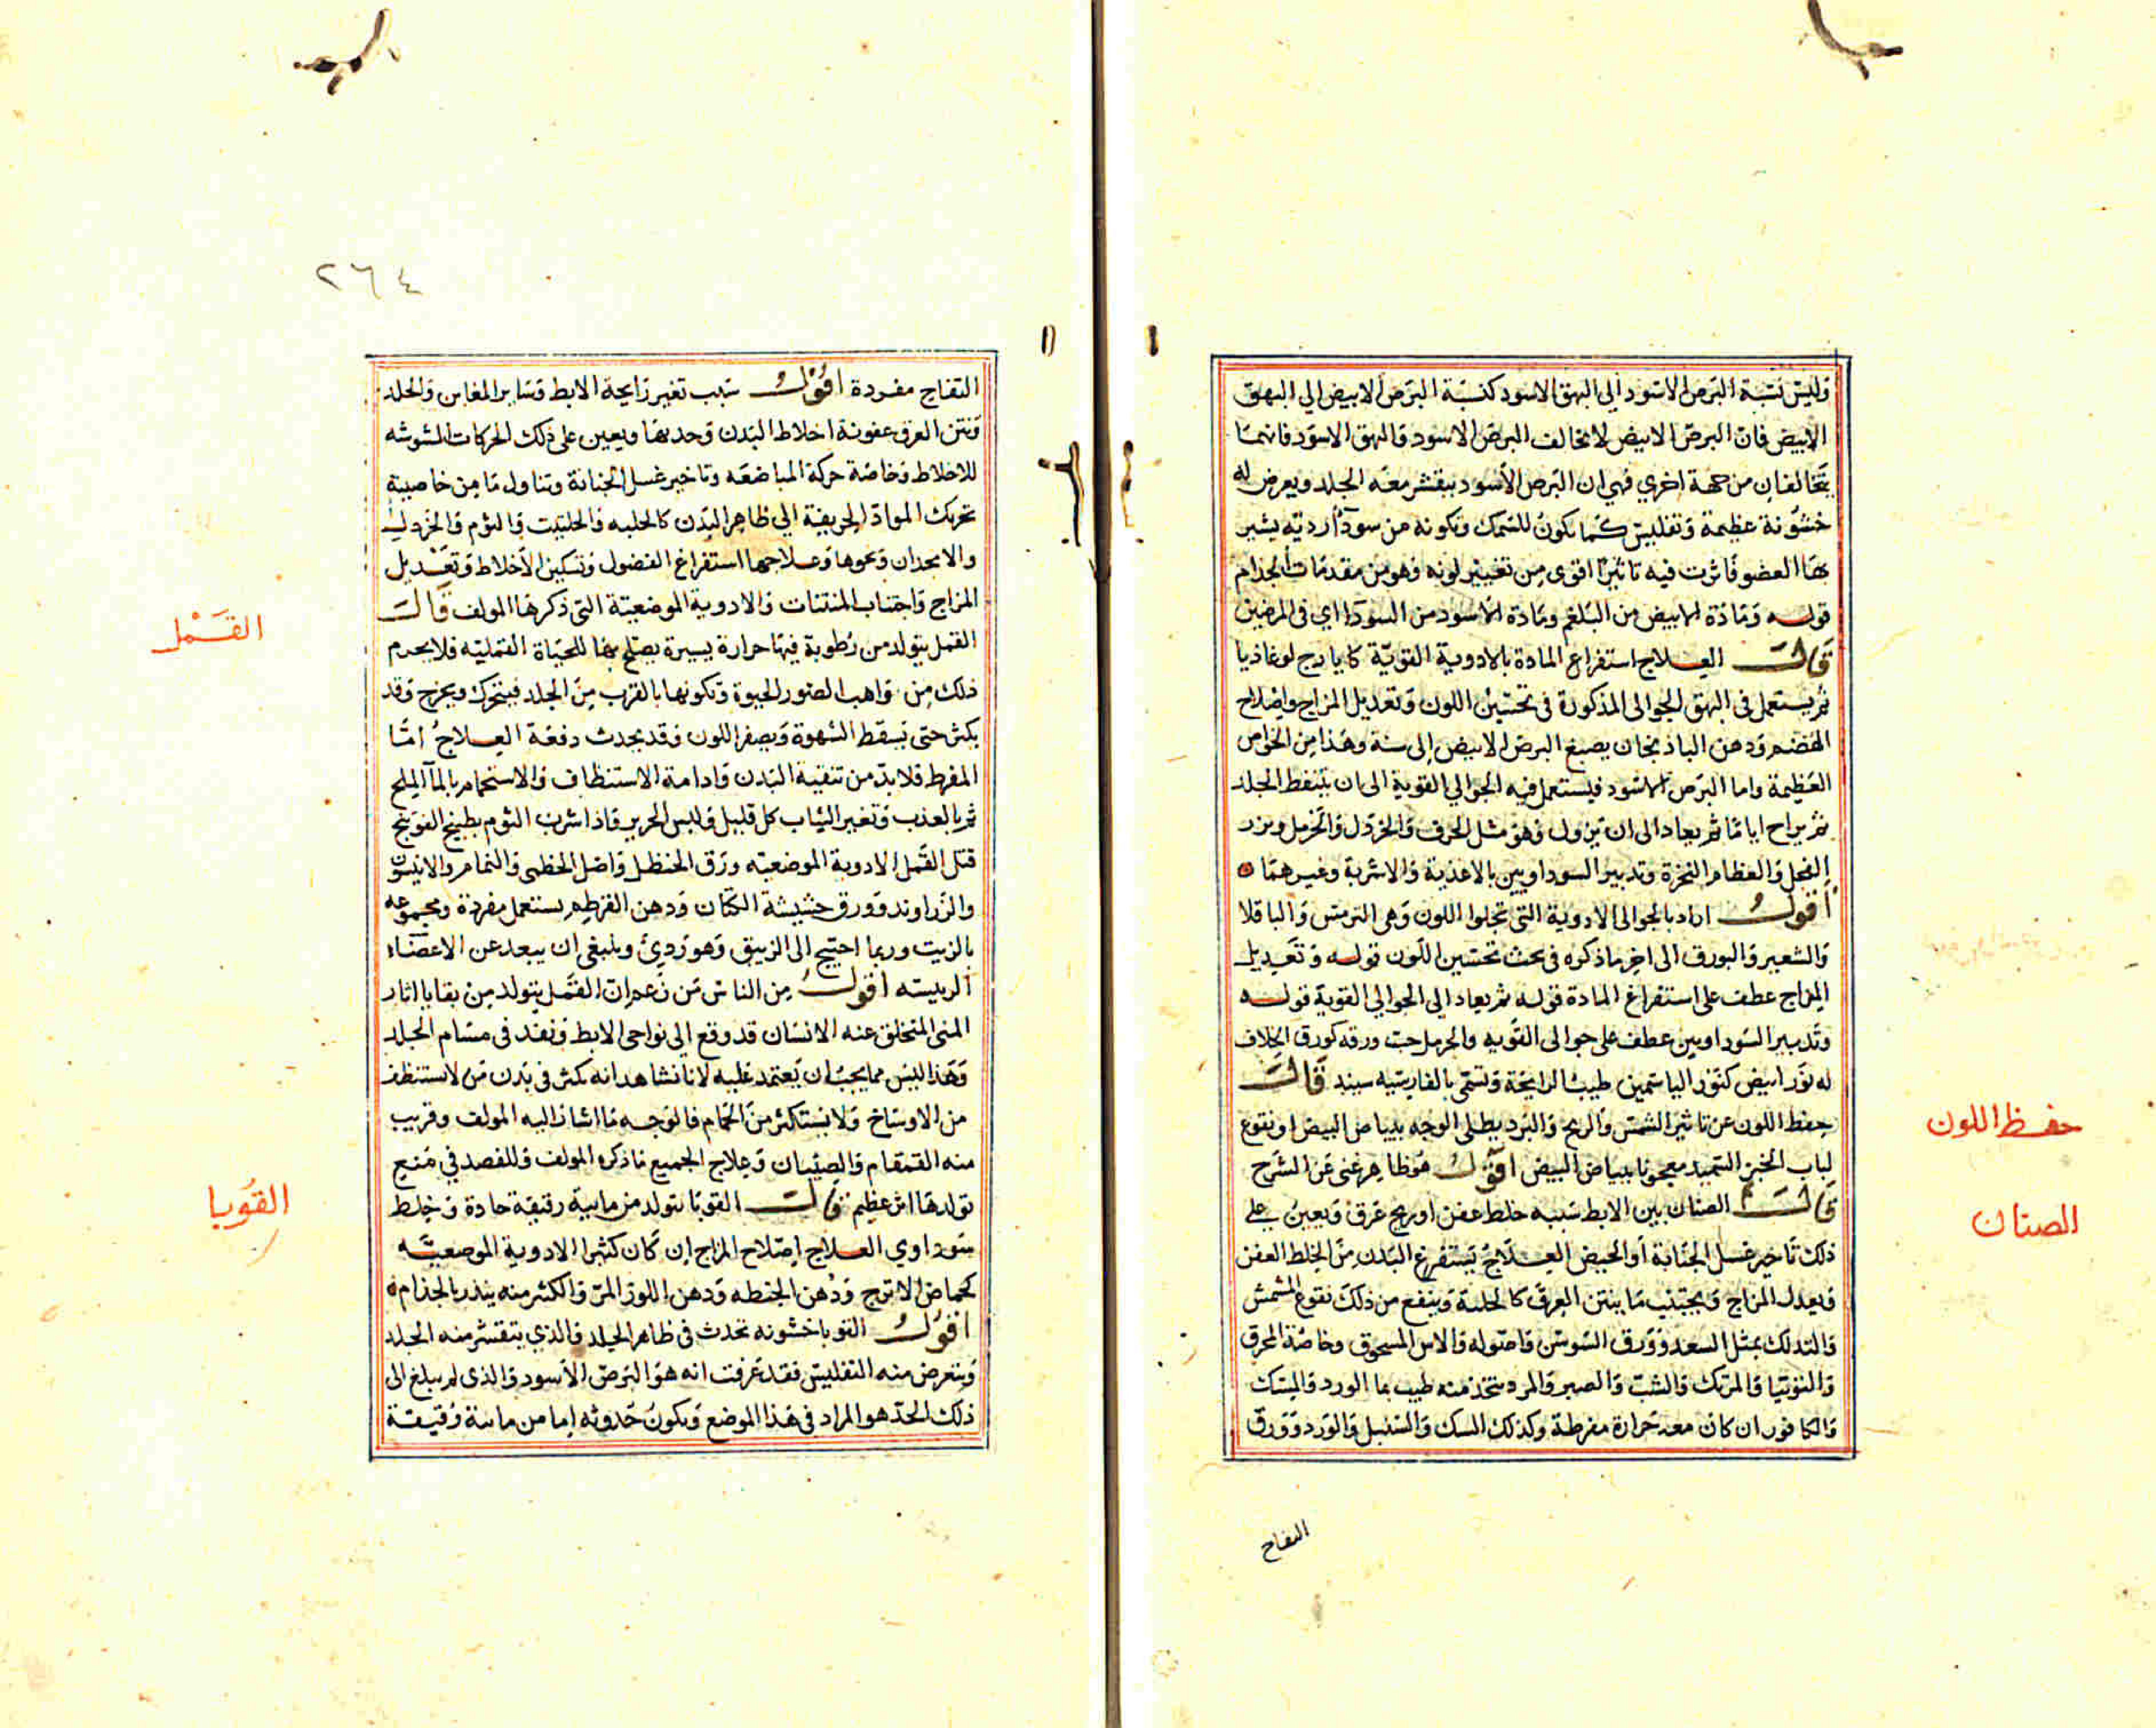 وليس نسبة البرص الاسود الي البهق الاسود كنسبة البرص الابيض الي البهق
الابيض فان البرص الابيض لا يخالف البرص الاسود والبهق الاسود فانهما
يتخالفان من جهة اخري فهي ان البرص الاسود يتقشر معه الجلد ويعرض له
خشونة عظيمة وتفليس كما يكون للسمك وتكونه من سودآ ردية يشير
بها العضو فاثرت فيه تاثيرا اقوى من تغيير لونه وهو من مقدمات الجذام
قوله ومادة الابيض من البلغم ومادة الاسود من السودا اي في المرضين
قالت العلاج استفراغ المادة بالادوية القوية كايارج لوغاذيا
ثم يستعمل في البهق الجوالى المذكورة فى تحسين اللون وتعديل المزاج واصلاح
الهضم ودهن الباذنجان يصبغ البرص الابيض إلى سنة وهذا من الخواص
العظيمة واما البرص الاسود فيستعمل فيه الجوالي القوية الى ان يتنفط الجلد
ثم يراح اياما ثم يعاد الى ان يزول وهو مثل الحرف والخردل والحرمل وبزر
الفجل والعظام النخرة وتدبير السوداويين بالاغذية والاشربة وغيرهما
أقول اراد بالجوالى الادوية التى تجلوا اللون وهى الترمس والباقلا
والشعير والبورق الى اخر ما ذكره فى بحث تحسين اللون قوله وتعديل
المزاج عطف على استفراغ المادة قوله ثم يعاد الي الجوالي القوية قوله
وتدبير السوداويين عطف على جوالى القويه والحرمل حب ورقه كورق الخلاف
له نور ابيض كنور الياسمين طيب الرايحة وتسمى بالفارسيه سپند قالت
حفظ اللون عن تاثير الشمس والريح والبرد يطلى الوجه ببياض البيض او نقوع
لباب الخبز السميد معجونا ببياض البيض اقول هو ظاهر غنى عن الشرح
قالت الصنان بين الابط سببه خلط عفن او ريح عرق ويعين على
ذلك تاخير غسل الجنابة أو الحيض العلاج يستفرغ البدن من الخلط العفن
ويعدل المزاج ويجتنب ما ينتن العرق كالحلبة وينفع من ذلك نقوع المشمش
والتدلك بمثل السعد وورق السوسن واصوله والاس المسحوق وخاصة المحرق
والتوتيا والمرتك والشب والصبر والمر ديتخذ منه طيب بما الورد والمسك
والكافور ان كان معه حرارة مفرطة وكذلك السك والسنبل والورد وورق
التفاح
حفظ اللون
الصنان
٢٦٤
التفاح مفردة اقول سبب تغير رايحة الابط وساير المغابن والجلد
ونتن العرق عفونة اخلاط البدن وحدتها ويعين على ذلك الحركات المشوشه
للاخلاط وخاصة حركة المباضعه وتاخير غسل الجنابة وتناول ما من خاصيته
تحريك المواد الحريفة الي ظاهر البدن كالحلبه والحلتيت والثوم والخردل
والانجدان ونحوها وعلاجها استفراغ الفضول وتسكين الأخلاط وتعديل
المزاج واجتناب المنتنات والادوية الموضعية التى ذكرها المولف قالت
القمل يتولد من رطوبة فيها حرارة يسيرة يصلح بها للحياة القمليه فلا يحرم
ذلك من واهب الصور لحيوة وتكونها بالقرب من الجلد فيتحرك ويخرج وقد
يكثر حتى يسقط الشهوة ويصفر اللون وقد يحدث دفعة العلاج امّا
المفرط فلا بد من تنقية البدن وادامة الاستنظاف والاستحمام بالمآ الملح
ثم بالعذب وتغير الثياب كل قليل ولبس الحرير واذا شرب الثوم بطبيخ الفوتنج
قتل القمل الادوية الموضعيه ورق الحنظل واصل الخطمى والنمام والانيسون
والزراوند وورق حشيشة الكتان ودهن القرطم يستعمل مفردة ومجموعه
بالزيت وربما احتيج الى الزيبق وهو ردئ وينبغى ان يبعد عن الاعضاء
الرييسه أقول من الناس من زعم ان القمل يتولد من بقايا اثار
المنى المتخلق عنه الانسان قد وقع الي نواحى الابط ونفذ فى مسام الجلد
وهذا ليس مما يجب ان يعتمد عليه لانا نشاهد انه يكثر فى بدن من لا يستنظف
من الاوساخ ولا يستكثر من الحمام فالوجه ما اشار اليه المولف وقريب
منه القمقام والصيبان وعلاج الجميع ما ذكره المولف وللفصد في منع
تولدها اثر عظيم قالت القوبا يتولد من مايية رقيقة حادة وخلط
سوداوي العلاج اصلاح المزاج ان كان كثيرا الادوية الموضعيّه
كحماض الاترج ودهن الحنطه ودهن اللوز المر والكثير منه ينذر بالجذام
اقول القوبا خشونه تحدث فى ظاهر الجلد والذي يتقشر منه الجلد
ويتعرض منه التفليس فقد عرفت انه هو البرص الاسود والذى لم يبلغ الى
ذلك الحد هو المراد فى هذا الموضع ويكون حدوثه إما من مايية رقيقة
القمل
القوبا